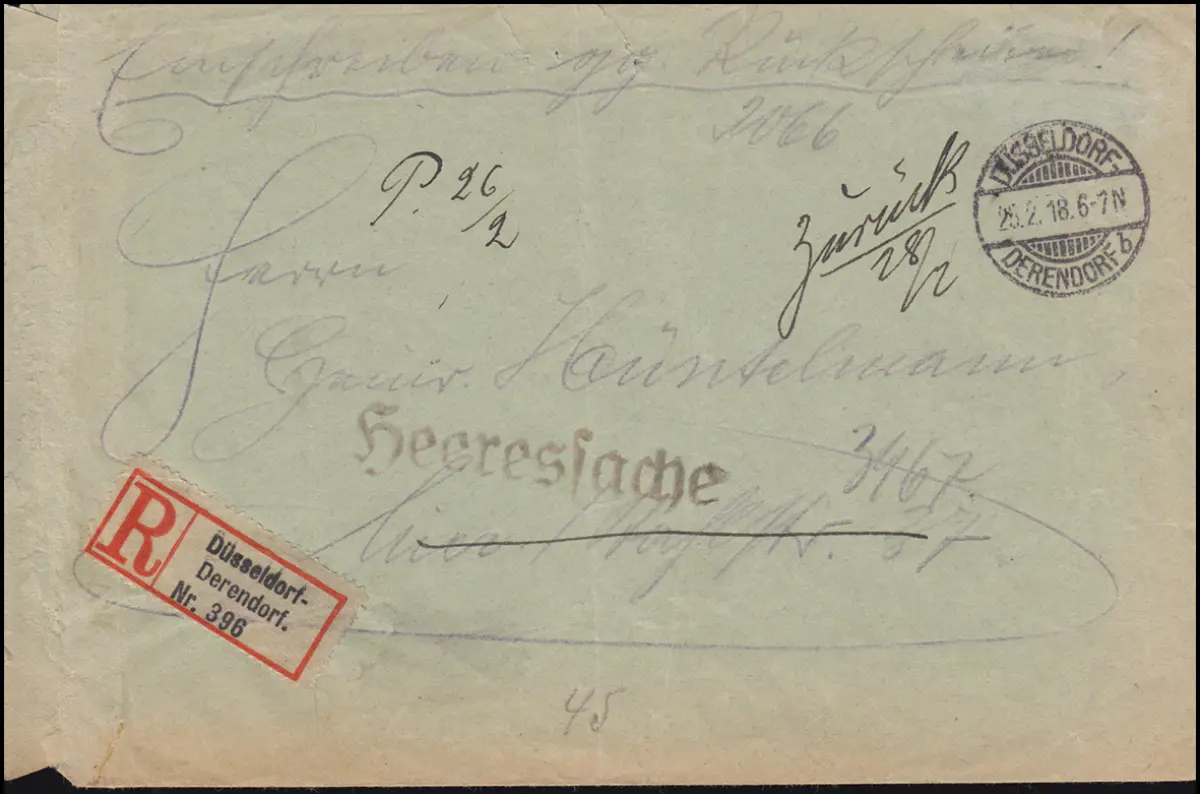 Einschreiben gg. Rückschein!
2066
P. 26/2
zurück
28/2
DÜSSELDORF-
25.2.18.6-7N
DERENDORF b
Herrn
Hüntelmann,
Heeressache
3467.
hier 37
R
Düsseldorf-
Derendorf.
Nr. 396
45